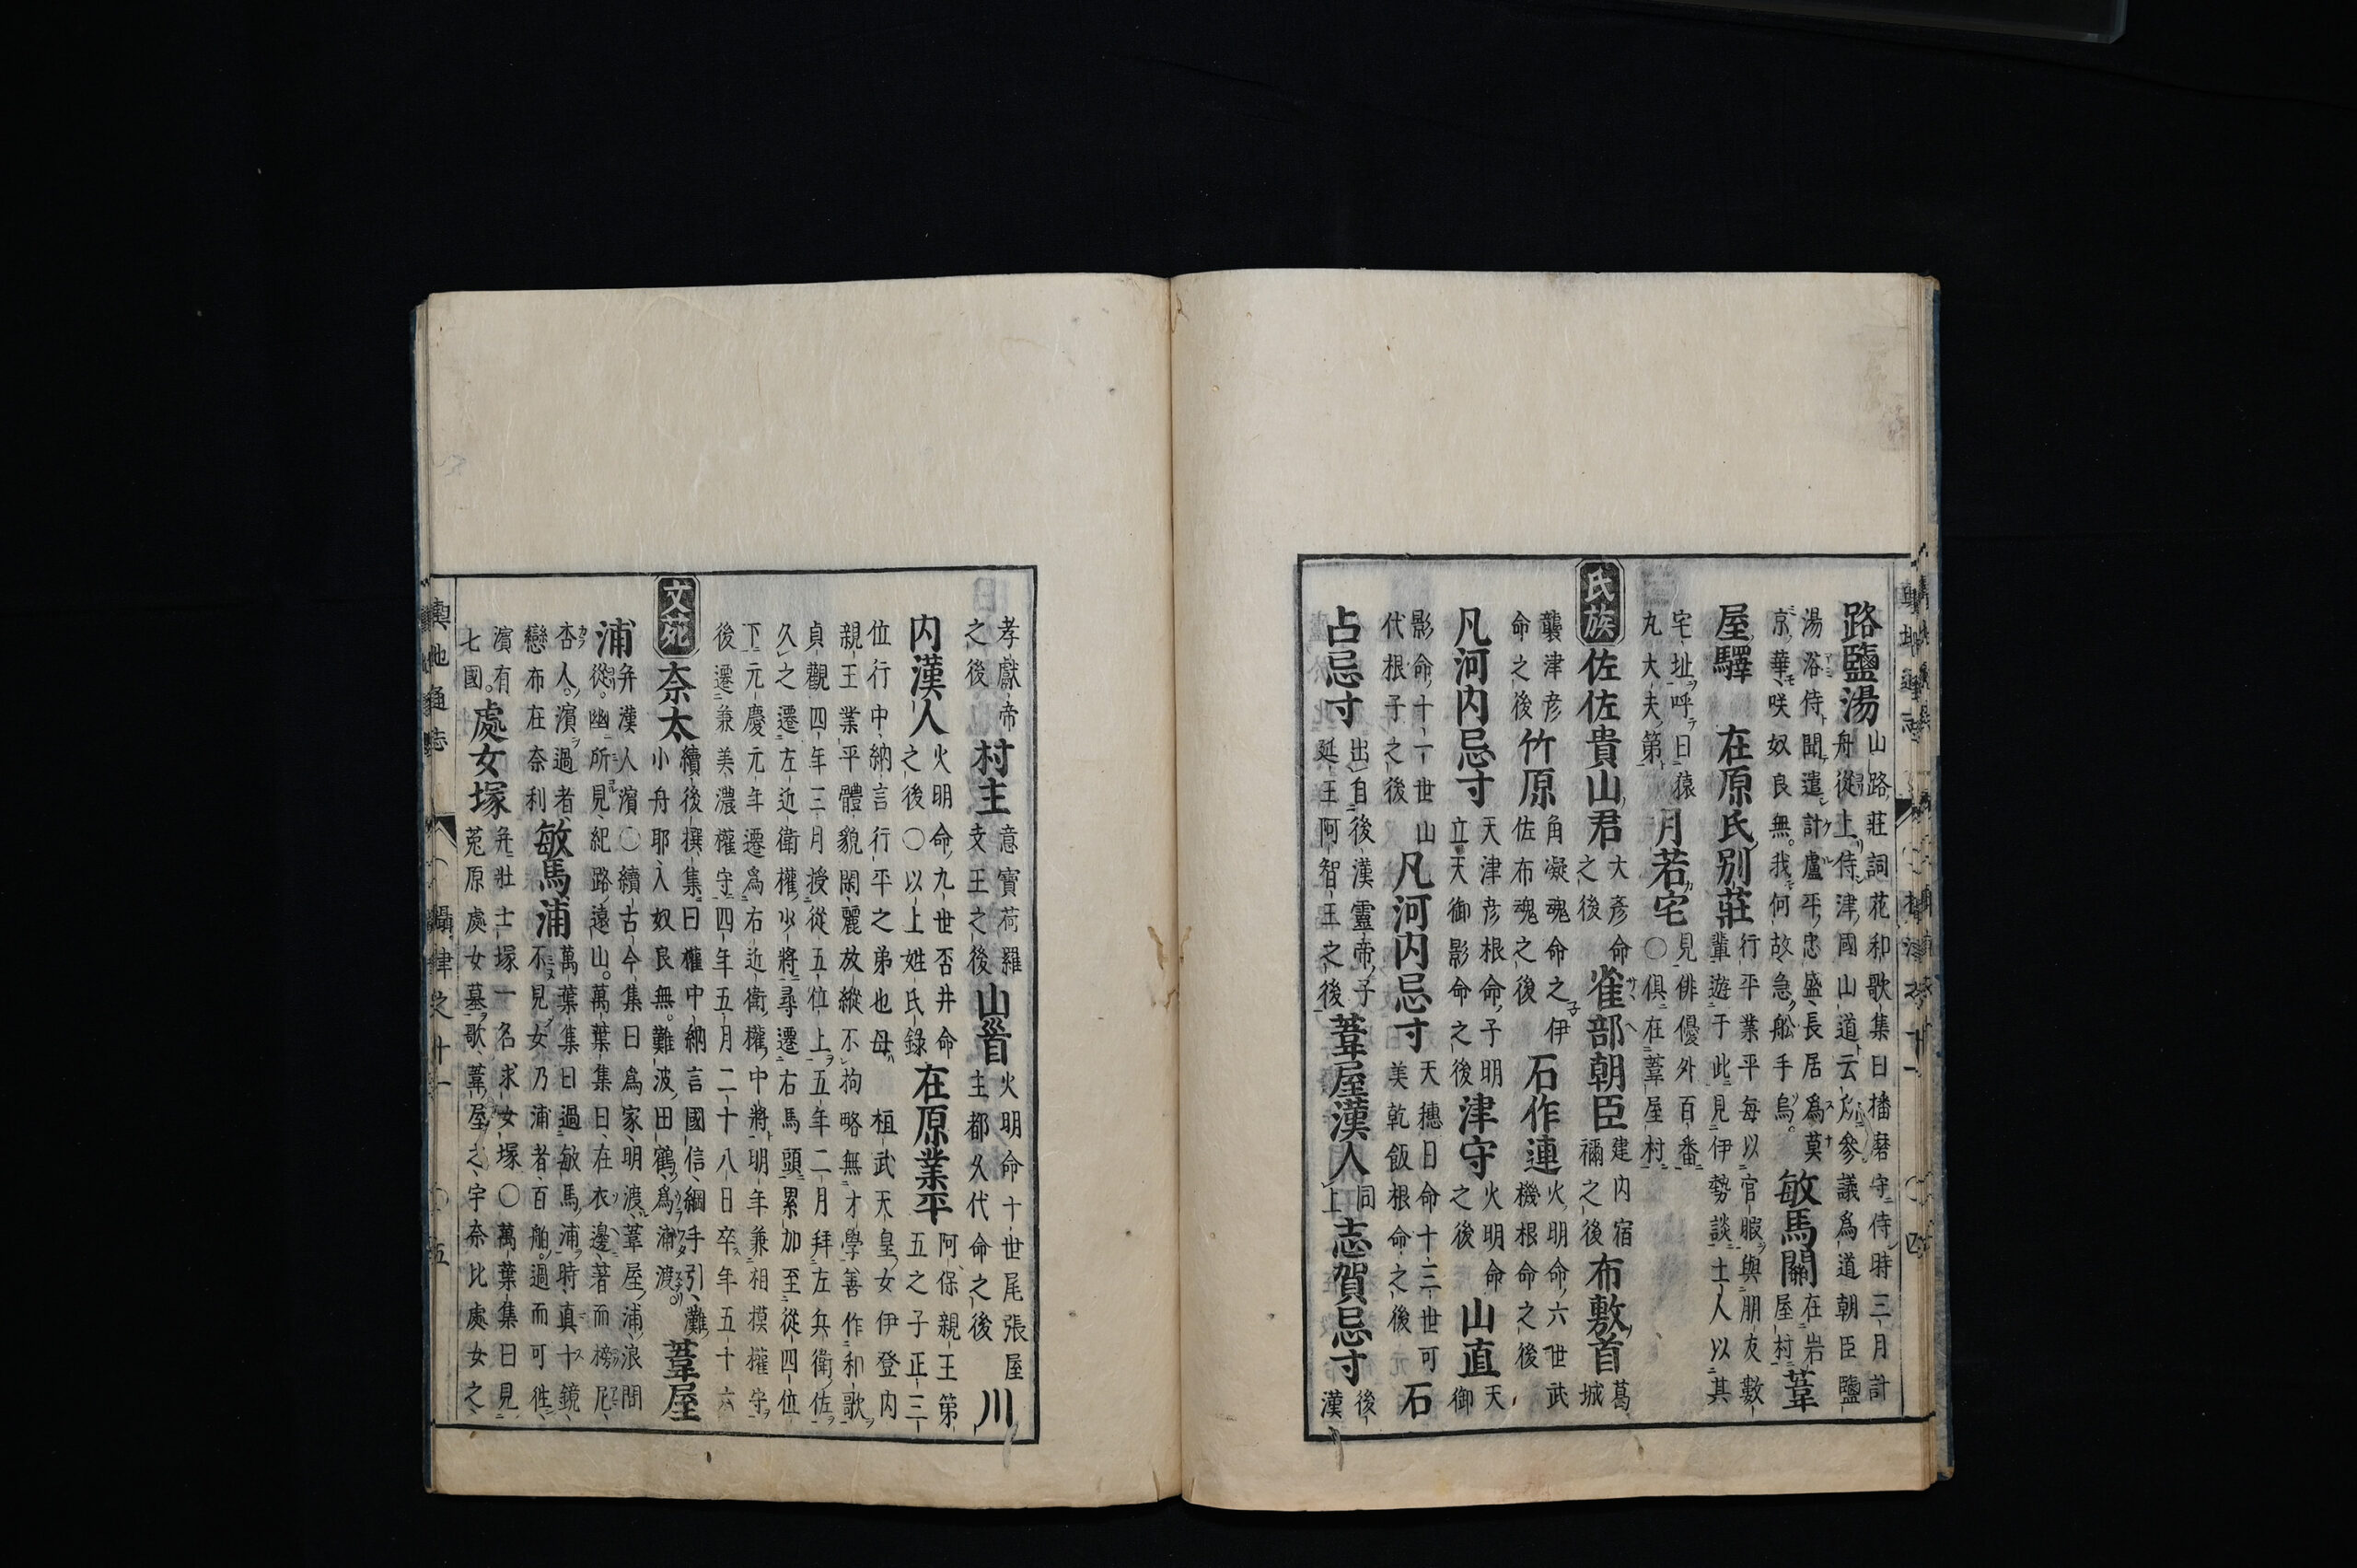 路鹽湯 山路莊詞花和歌集曰播磨守侍時三月計舟從上侍津國山道云所參議爲道朝臣鹽
湯浴侍聞遣計廬平忠盛長居爲莫京華咲奴良無我何故急舩手烏 敏馬關 在岩屋村 葦
屋驛 在原氏別莊 行平業平每以官暇與朋友數輩遊于此見伊勢談士人以其
宅址呼曰猿丸大夫第 月若宅 見俳優外百番○俱在葦屋村
氏族 佐佐貴山君 大彥命之後 雀部朝臣 建内宿禰之後 布敷首 葛城
襲津彥命之後 竹原 角凝魂命之子伊佐布魂之後 石作連 火明命六世武機根命之後
凡河内忌寸 天津彥根命子明立天御影命之後 津守 火明命之後 山直 天御
影命十一世山代根子之後 凡河内忌寸 天穗日命十三世可美乾飯根命之後 石
占忌寸 出自後漢靈帝子延王阿智王之後 葦屋漢人 同上 志賀忌寸 後漢
孝獻帝之後 村主 意寶荷羅支王之後 山首 火明命十世尾張屋主都久代命之後 川
内漢人 火明命九世否井命之後○以上姓氏錄 在原業平 阿保親王第五之子正三
位行中納言行平之弟也母桓武天皇女伊登内
親王業平體貌閑麗放縱不拘略無才學善作和歌
貞觀四年三月授從五位上五年二月拜左兵衛佐
久之遷左近衛權少將尋遷右馬頭累加至從四位
下元慶元年遷爲右近衛權中將明年兼相模權守
後遷兼美濃權守四年五月二十八日卒年五十六
文苑 奈太 續後撰集曰權中納言國信綱手引灘小舟耶入奴良無難波田鶴爲浦渡 葦屋
浦 弁漢人濱○續古今集曰爲家明渡葦屋浦浪間從幽所見紀路遠山萬葉集曰在衣邊著而榜尼
杏人濱過者戀布在奈利 敏馬浦 萬葉集曰過敏馬浦時真十鏡不見女乃浦者百舶過而可往
濱有七國 處女塚 弁壯士塚一名求女塚○萬葉集曰見菟原處女墓歌葦屋之宇奈比處女之
輿地通志 攝津之十一 五